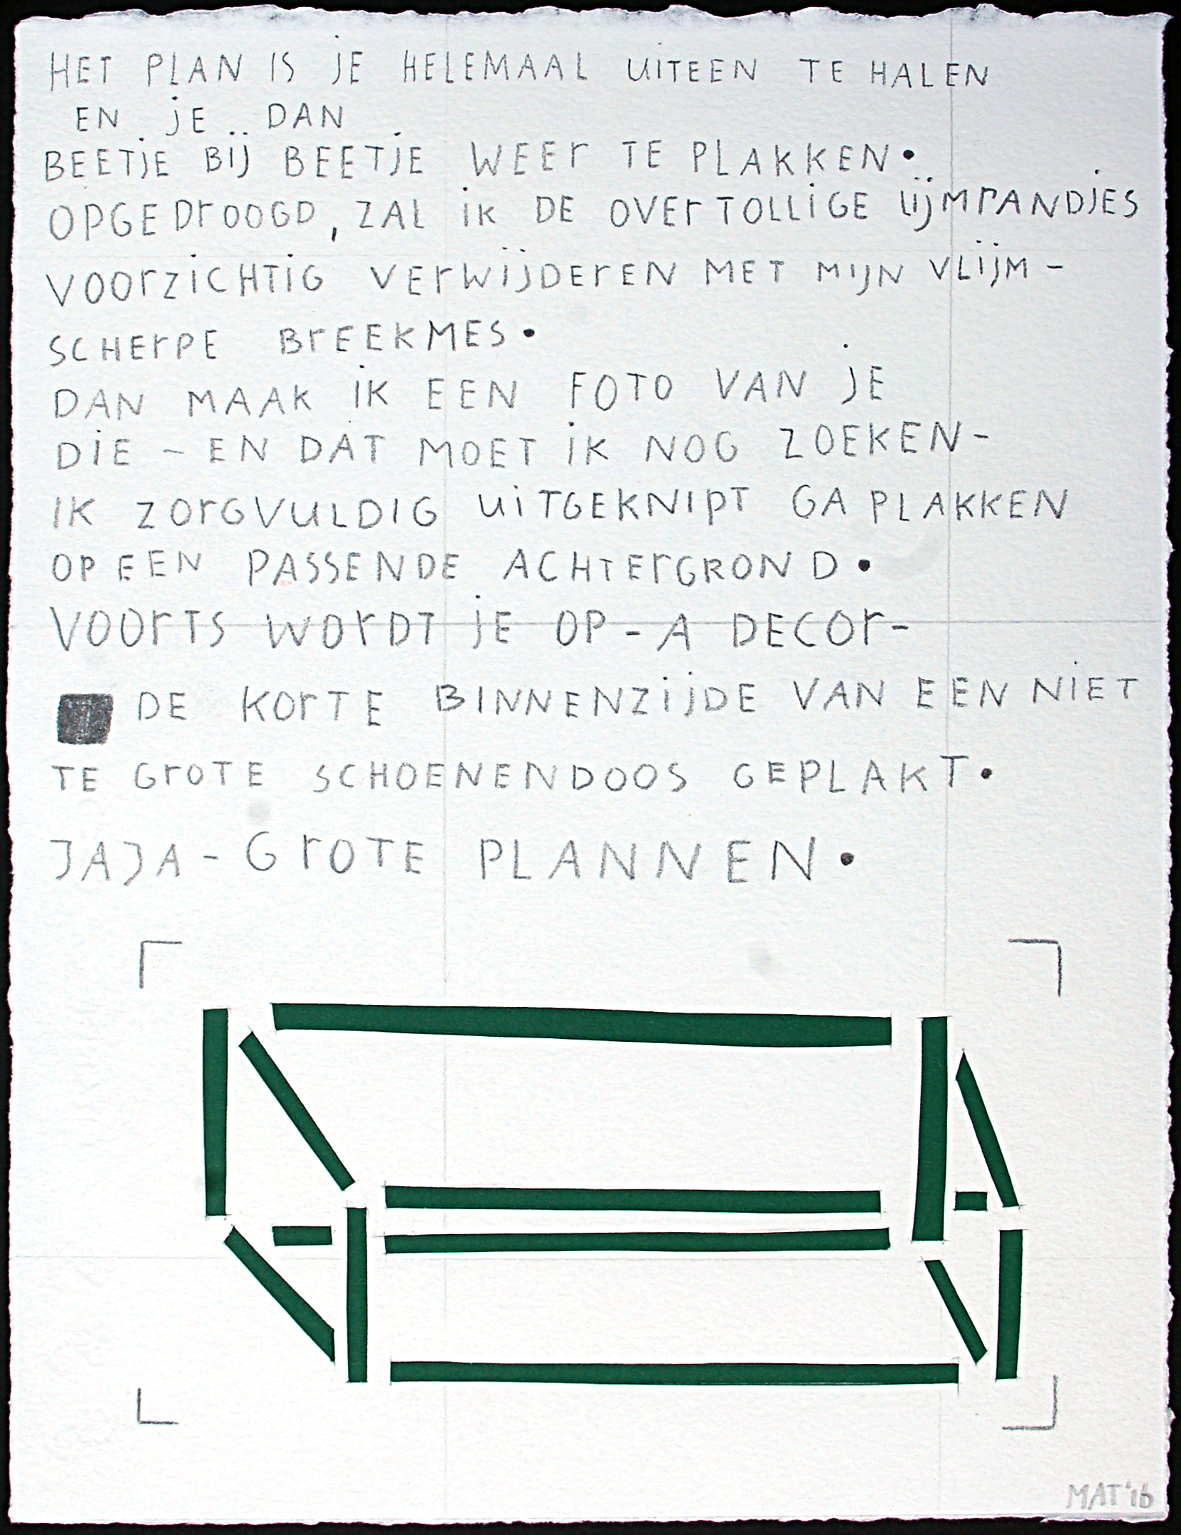 HET PLAN IS JE HELEMAAL UITEEN TE HALEN
EN JE DAN
BEETJE BIJ BEETJE WEER TE PLAKKEN.
OPGEDROOGD, ZAL IK DE OVERTOLLIGE LIJMRANDJES
VOORZICHTIG VERWIJDEREN MET MIJN VLIJM-
SCHERPE BREEKMES.
DAN MAAK IK EEN FOTO VAN JE
DIE - EN DAT MOET IK NOG ZOEKEN-
IK ZORGVULDIG UITGEKNIPT GA PLAKKEN
OP EEN PASSENDE ACHTERGROND.
VOORTS WORDT JE OP - A DECOR-
DE KORTE BINNENZIJDE VAN EEN NIET
TE GROTE SCHOENENDOOS GEPLAKT.
JAJA - GROTE PLANNEN.
MAT '16